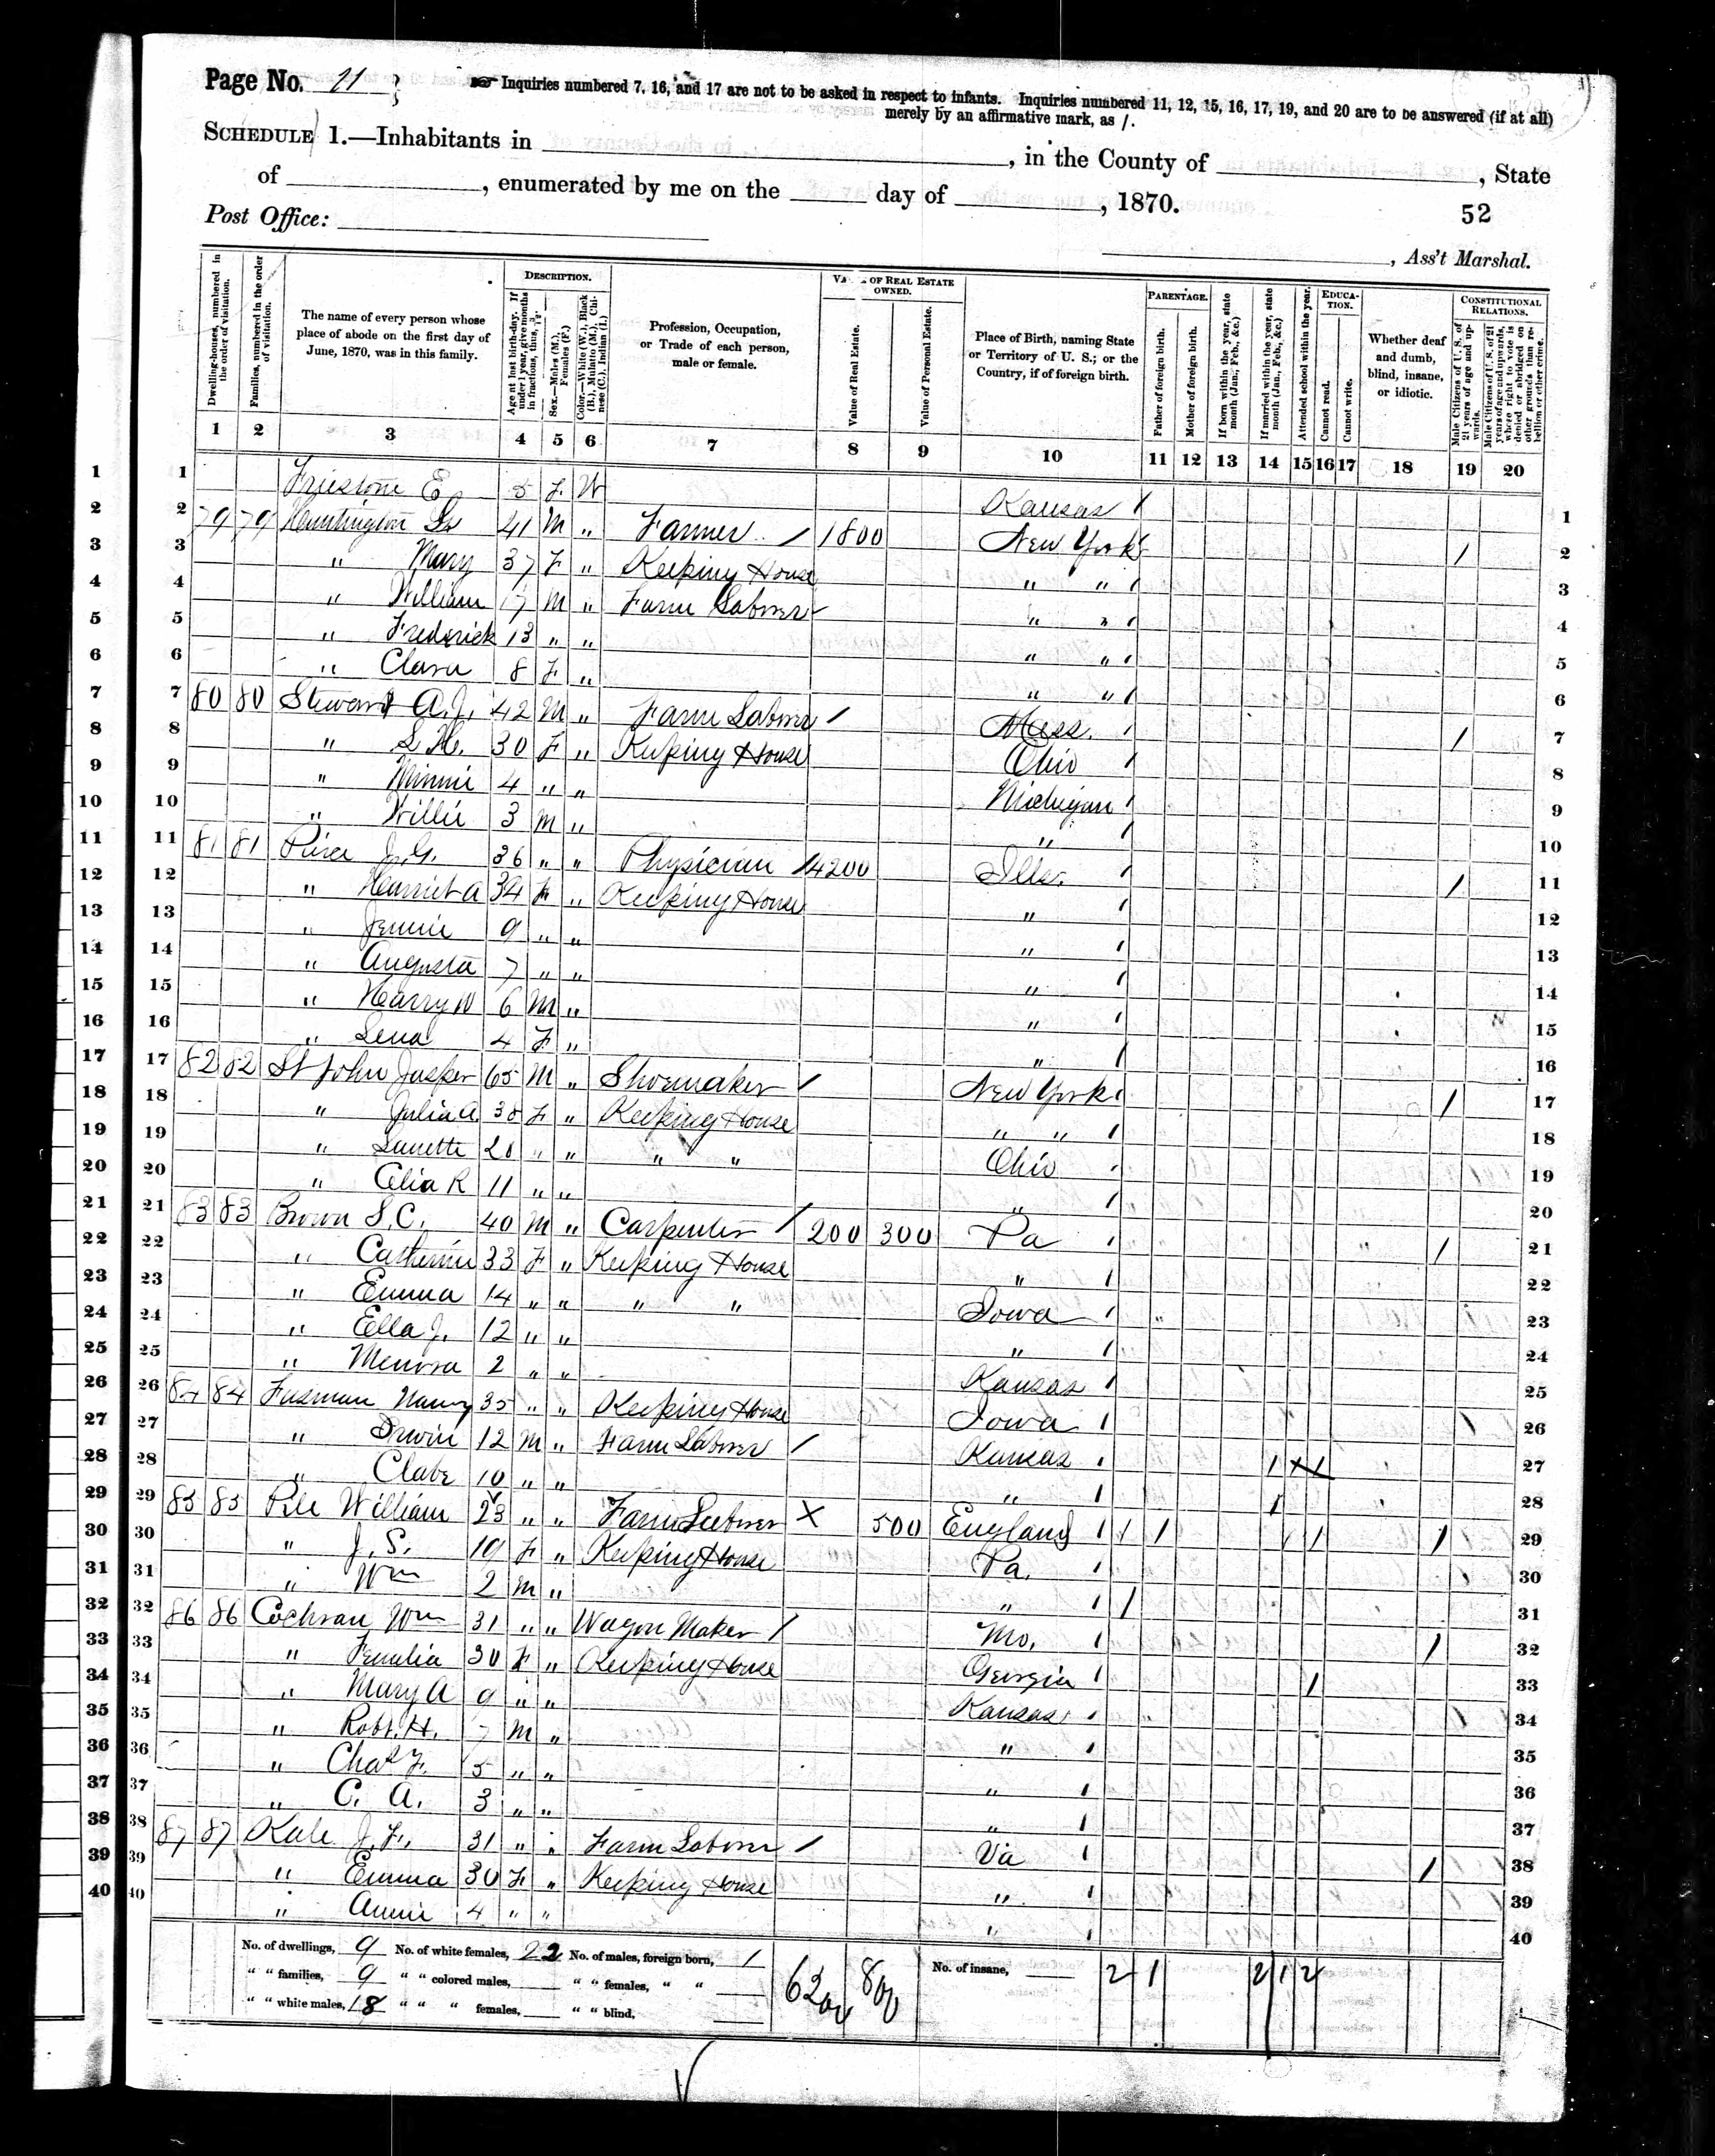 Page No. 11
Inquiries numbered 7, 16, and 17 are not to be asked in respect to infants. Inquiries numbered 11, 12, 15, 16, 17, 19, and 20 are to be answered (if at all)
merely by an affirmative mark, as /.
SCHEDULE 1.—Inhabitants in , in the County of , State
of , enumerated by me on the day of , 1870.
52
Post Office:
, Ass't Marshal.
Dwelling-houses, numbered in the order of visitation.
Families, numbered in the order of visitation.
The name of every person whose place of abode on the first day of June, 1870, was in this family.
DESCRIPTION.
Age at last birth-day. If under 1 year, give months in fractions, thus, 3/12.
Sex.—Males (M.), Females (F.)
Color.—White (W.), Black (B.), Mulatto (M.), Chinese (C.), Indian (I.)
Profession, Occupation, or Trade of each person, male or female.
OF REAL ESTATE OWNED.
Value of Real Estate.
Value of Personal Estate.
Place of Birth, naming State or Territory of U. S.; or the Country, if of foreign birth.
PARENTAGE.
Father of foreign birth.
Mother of foreign birth.
If born within the year, state month (Jan., Feb., &c.)
If married within the year, state month (Jan., Feb., &c.)
Attended school within the year.
EDUCATION.
Cannot read.
Cannot write.
Whether deaf and dumb, blind, insane, or idiotic.
CONSTITUTIONAL RELATIONS.
Male Citizens of U. S. of 21 years of age and upwards.
Male Citizens of U. S. of 21 years of age and upwards, whose right to vote is denied or abridged on other grounds than rebellion or other crime.
1 2 3 4 5 6 7 8 9 10 11 12 13 14 15 16 17 18 19 20
1 E 5 F W Kansas / 1
2 79 79 Huntington 41 M " Farmer / 1800 New York / / 2
3 " Mary 37 F " Keeping House " " / 3
4 " William 17 M " Farm Laborer " " / 4
5 " Frederick 13 " " " " / 5
6 " Clara 8 F " " " / 6
7 80 80 Stewart A. J. 42 M " Farm Laborer / Mass. / / 7
8 " 30 F " Keeping House Ohio / 8
9 " Minnie 4 " " Michigan / 9
10 " Willie 3 M " " / 10
11 81 81 J. G. 36 " " Physician / 4200 Ills. / / 11
12 " Harriet A 34 F " Keeping House " / 12
13 " Jennie 9 " " " / 13
14 " Augusta 7 " " " / 14
15 " Harry W 6 M " " / 15
16 " Lena 4 F " " / 16
17 82 82 St John Jasper 65 M " Shoemaker / New York / / 17
18 " Julia A 38 F " Keeping House " " / 18
19 " 20 " " " " Ohio / 19
20 " Celia R 11 " " " / 20
21 83 83 Brown S. C. 40 M " Carpenter / 200 300 Pa / / 21
22 " Catherine 33 F " Keeping House " / 22
23 " Emma 14 " " " " Iowa / 23
24 " Ella J. 12 " " " / 24
25 " 2 " " Kansas / 25
26 84 84 Nancy 35 " " Keeping House Iowa / 26
27 " Irwin 12 M " Farm Laborer / Kansas / / 27
28 " Clabe 10 " " " / / 28
29 85 85 William 23 " " Farm Laborer X 500 England / / / / / / 29
30 " J. S. 19 F " Keeping House Pa. / 30
31 " Wm 2 M " " / / 31
32 86 86 Cochran Wm 31 " " Wagon Maker / Mo. / / 32
33 " 30 F " Keeping House Georgia / / 33
34 " Mary A 9 " " Kansas / 34
35 " Robt. H. 7 M " " / 35
36 " Chas F. 5 " " " / 36
37 " C. A. 3 " " " / 37
38 87 87 J. F. 31 " " Farm Laborer / Va / / 38
39 " Emma 30 F " Keeping House " / 39
40 " Annie 4 " " " / 40
No. of dwellings, 9 No. of white females, 22 No. of males, foreign born, 1
" " families, 9 " " colored males, " " females, " "
" " white males, 18 " " " females, " " blind,
6200 800
No. of insane,
2 1 2 1 2